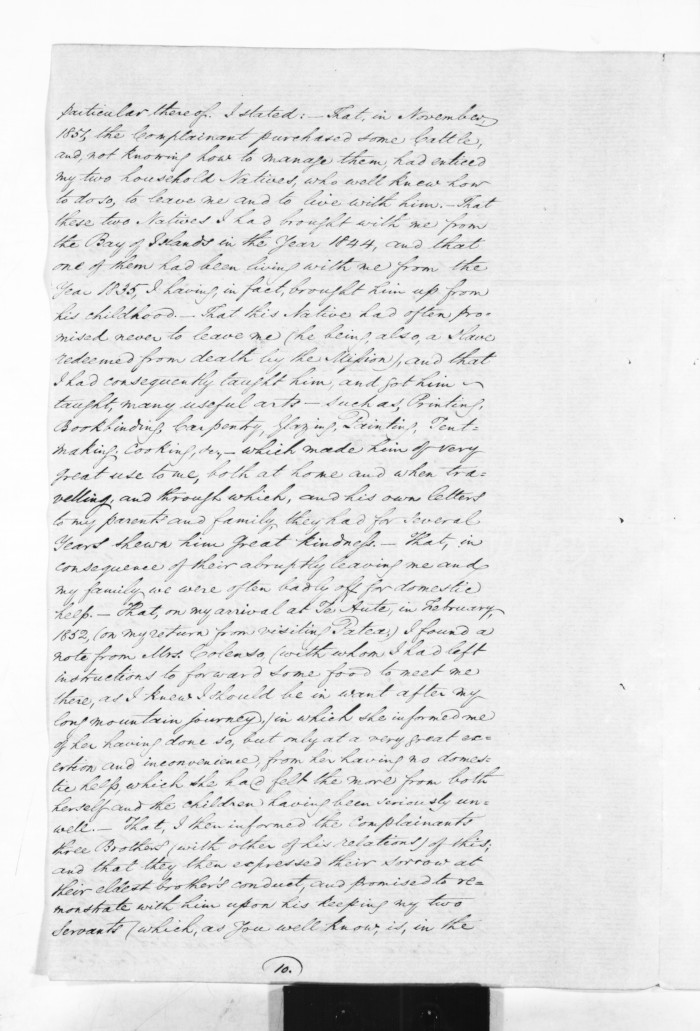 particular thereof. I stated:— That, in November,
1851, the Complainant purchased some Cattle,
and, not knowing how to manage them, had enticed
my two household Natives, who well knew how
to do so, to leave me and to live with him.— That
these two Natives I had brought with me from
the Bay of Islands in the Year 1844, and that
one of them had been living with me from the
Year 1835, I having, in fact, brought him up from
his childhood.— That this Native had often pro=
mised never to leave me (he being, also, a Slave
redeemed from death by the Mission), and that
I had consequently taught him, and got him
taught, many useful arts— such as, Printing,
Bookbinding, Carpentry, Glazing, Painting, Tent-
making, Cooking, &c,— which made him of very
great use to me, both at home and when tra=
velling, and through which, and his own letters
to my parents and family, they had for several
Years shewn him great kindness.— That, in
consequence of their abruptly leaving me and
my family we were often badly off for domestic
help.— That, on my arrival at Te Aute, in February,
1852, (on my return from visiting Patea,) I found a
note from Mrs. Colenso, (with whom I had left
instructions to forward some food to meet me
there, as I knew I should be in want after my
long mountain journey,) in which she informed me
of her having done so, but only at a very great ex=
ertion and inconvenience, from her having no domes=
tic help, which she had felt the more from both
herself and the children having been seriously un=
well.— That, I then informed the Complainants
three Brothers (with other of his relations) of this;
and that they then expressed their sorrow at
their eldest brother's conduct, and promised to re=
monstrate with him upon his keeping my two
Servants (which, as You well know, is, in the
10.